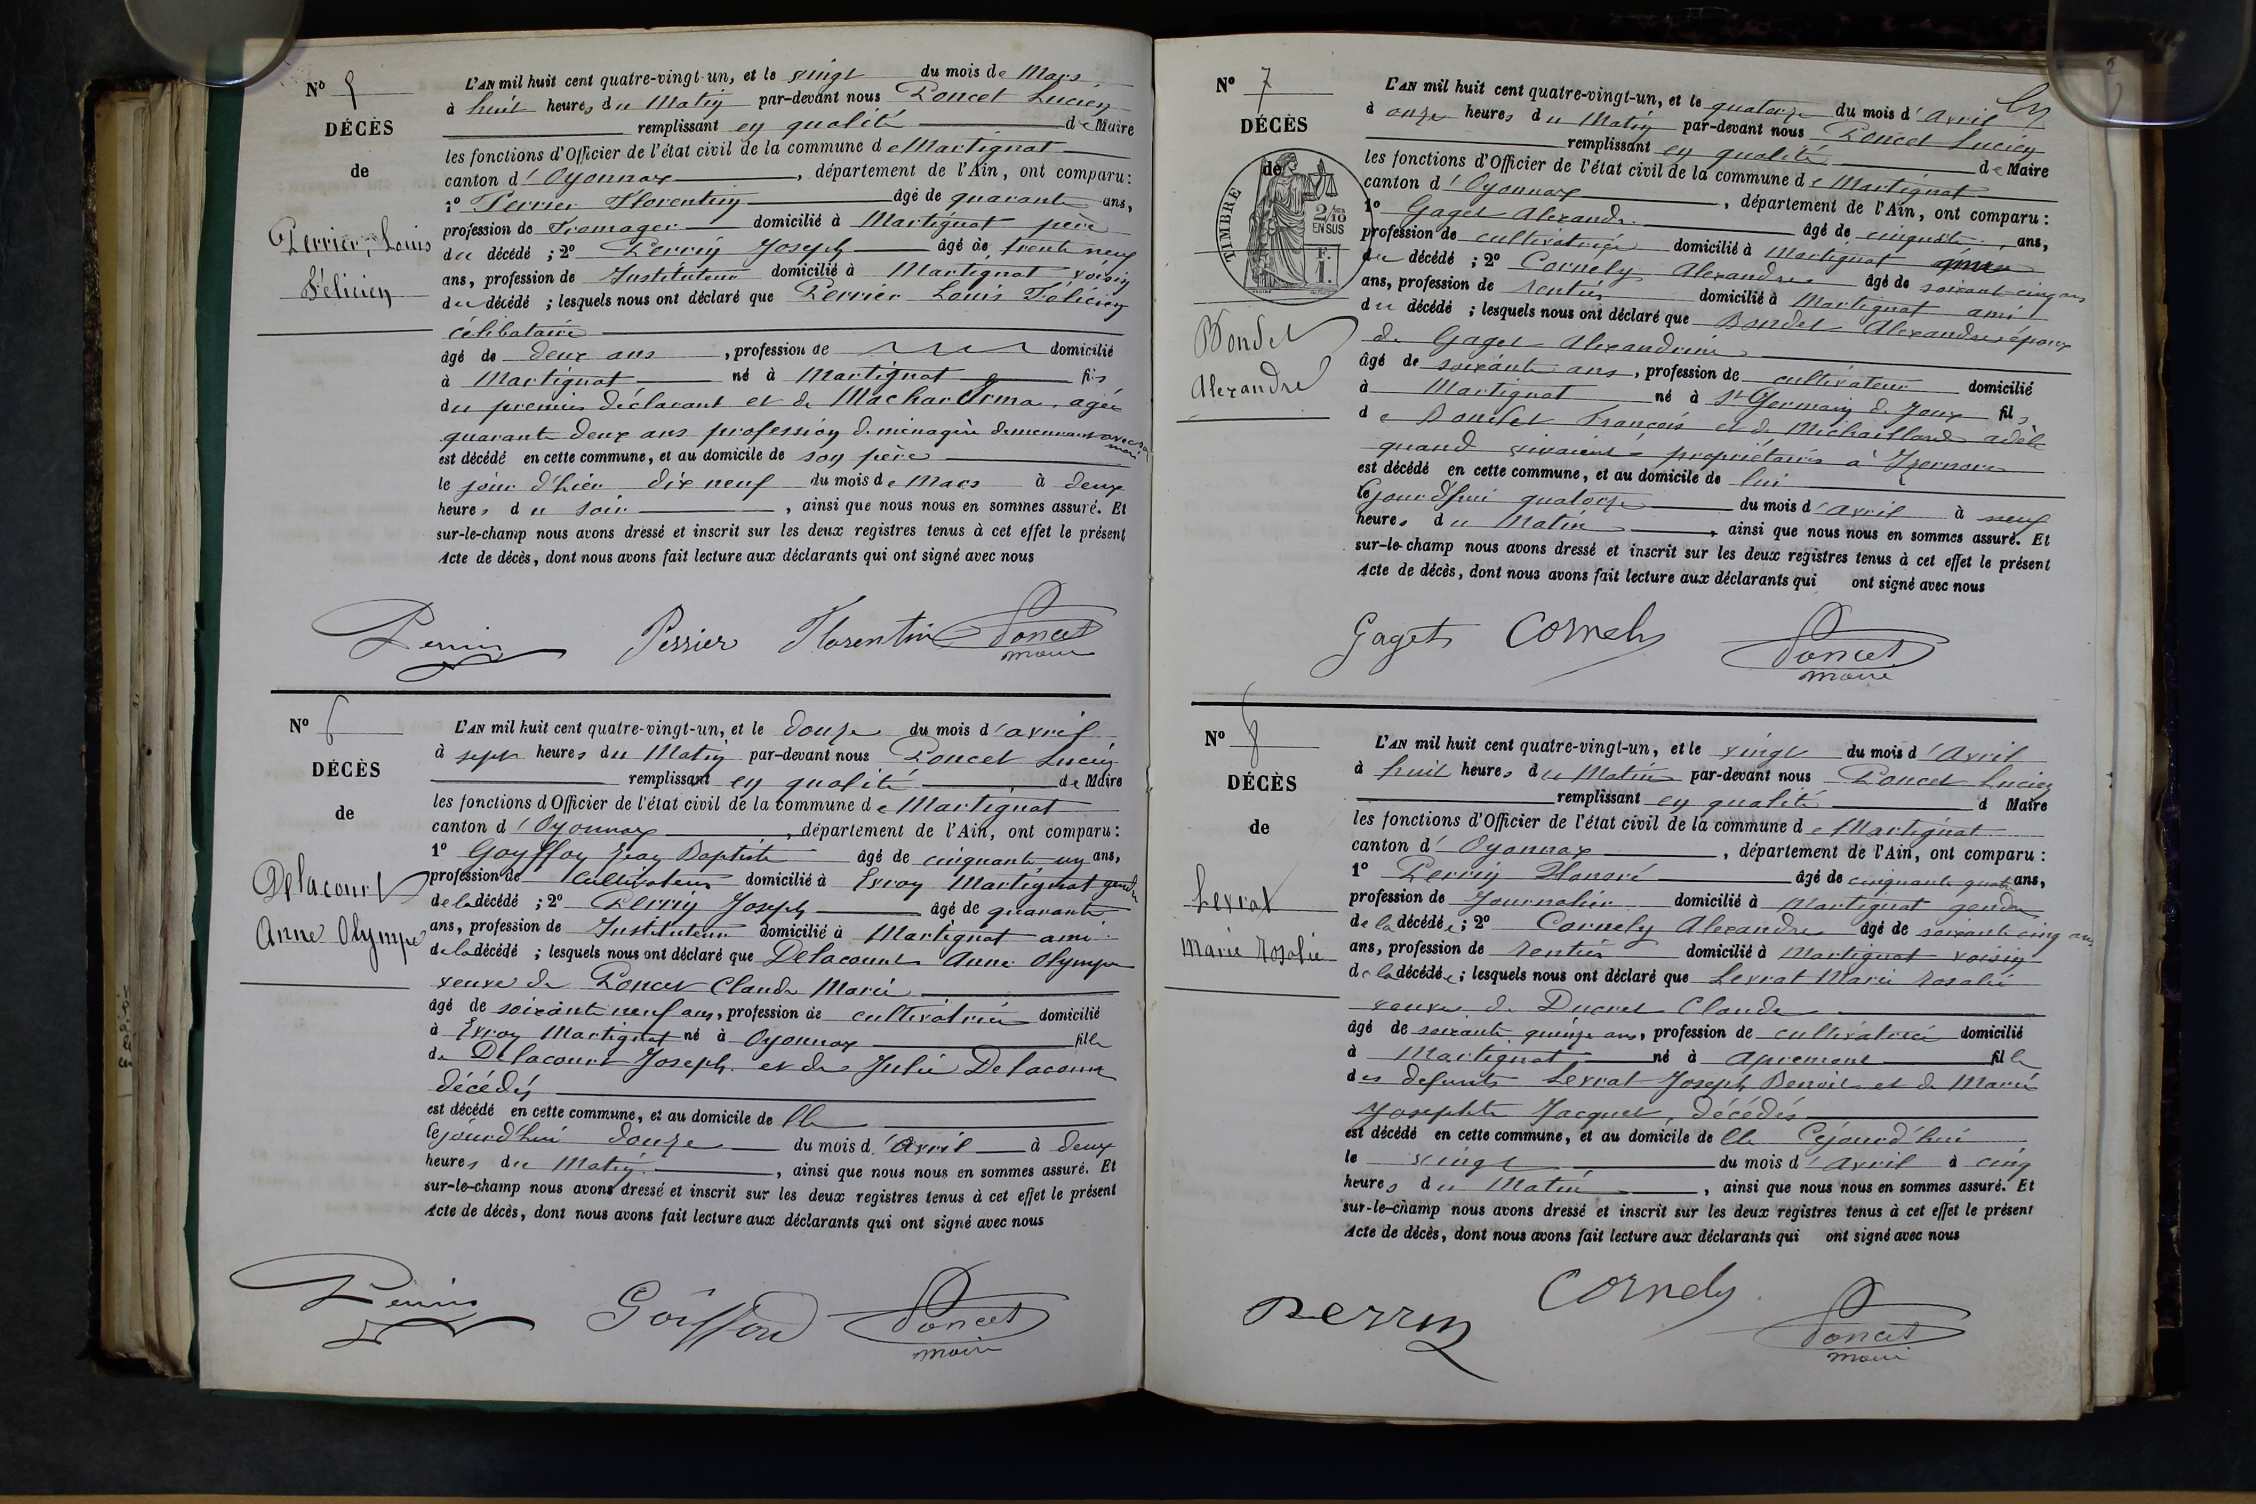 N° 5
DÉCÈS
de
Perrier, Louis
Félicien
L'AN mil huit cent quatre-vingt-un, et le vingt du mois de Mars
à huit heures du Matin par-devant nous Poncet Lucien
remplissant en qualité de Maire
les fonctions d'Officier de l'état civil de la commune de Martignat
canton d'Oyonnax, département de l'Ain, ont comparu :
1° Perrier Florentin âgé de quarante ans,
profession de Fromager domicilié à Martignat père
du décédé ; 2° Perrin Joseph âgé de trente neuf
ans, profession de Instituteur domicilié à Martignat voisin
du décédé ; lesquels nous ont déclaré que Perrier Louis Félicien
célibataire
âgé de deux ans, profession de domicilié
à Martignat né à Martignat fils
du premier déclarant et de Machar Irma, agée
quarante deux ans profession de ménagère demeurant avec son mari
est décédé en cette commune, et au domicile de son père
le jour d'hier dix neuf du mois de Mars à deux
heures du soir, ainsi que nous nous en sommes assuré. Et
sur-le-champ nous avons dressé et inscrit sur les deux registres tenus à cet effet le présent
Acte de décès, dont nous avons fait lecture aux déclarants qui ont signé avec nous
Perrin Perrier Florentin Poncet
maire
N° 6
DÉCÈS
de
Delacourt
Anne Olympe
L'AN mil huit cent quatre-vingt-un, et le douze du mois d'avril
à sept heures du Matin par-devant nous Poncet Lucien
remplissant en qualité de Maire
les fonctions d'Officier de l'état civil de la commune de Martignat
canton d'Oyonnax, département de l'Ain, ont comparu :
1° Goyffon Jean Baptiste âgé de cinquante un ans,
profession de cultivateur domicilié à Evron Martignat gendre
de la décédé ; 2° Perrin Joseph âgé de quarante
ans, profession de Instituteur domicilié à Martignat ami
de la décédé ; lesquels nous ont déclaré que Delacourt Anne Olympe
veuve de Poncet Claude Marie
âgé de soixante neuf ans, profession de cultivatrice domicilié
à Evron Martignat né à Oyonnax fille
de Delacourt Joseph et de Julie Delacour
décédés
est décédé en cette commune, et au domicile de elle
Cejourd'hui douze du mois d'Avril à deux
heures du Matin, ainsi que nous nous en sommes assuré. Et
sur-le-champ nous avons dressé et inscrit sur les deux registres tenus à cet effet le présent
Acte de décès, dont nous avons fait lecture aux déclarants qui ont signé avec nous
Perrin Goiffon Poncet
maire
N° 7
DÉCÈS
de
TIMBRE
2/10
EN SUS
F.
1.
Bondet
Alexandre
L'AN mil huit cent quatre-vingt-un, et le quatorze du mois d'avril
à onze heures du Matin par-devant nous Poncet Lucien
remplissant en qualité de Maire
les fonctions d'Officier de l'état civil de la commune de Martignat
canton d'Oyonnax, département de l'Ain, ont comparu :
1° Gaget Alexandre âgé de cinquante ans,
profession de cultivatrice domicilié à Martignat
du décédé ; 2° Cornely Alexandre âgé de soixante cinq ans
ans, profession de rentier domicilié à Martignat ami
du décédé ; lesquels nous ont déclaré que Bondet Alexandre époux
de Gaget Alexandrine
âgé de soixante ans, profession de cultivateur domicilié
à Martignat né à St Germain de Joux fils
de Bondet François et de Michaillard adèle
quand vivaient propriétaires à Izernore
est décédé en cette commune, et au domicile de lui
Cejourd'hui quatorze du mois d'avril à neuf
heures du Matin, ainsi que nous nous en sommes assuré. Et
sur-le-champ nous avons dressé et inscrit sur les deux registres tenus à cet effet le présent
Acte de décès, dont nous avons fait lecture aux déclarants qui ont signé avec nous
Gaget Cornely Poncet
maire
N° 8
DÉCÈS
de
Levrat
Marie Rosalie
L'AN mil huit cent quatre-vingt-un, et le vingt du mois d'Avril
à huit heures du Matin par-devant nous Poncet Lucien
remplissant en qualité d Maire
les fonctions d'Officier de l'état civil de la commune de Martignat
canton d'Oyonnax, département de l'Ain, ont comparu :
1° Perrin Honoré âgé de cinquante quatre ans,
profession de Journalier domicilié à Martignat gendre
de la décédée ; 2° Cornely Alexandre âgé de soixante cinq ans
ans, profession de rentier domicilié à Martignat voisin
de la décédée ; lesquels nous ont déclaré que Levrat Marie Rosalie
veuve de Ducret Claude
âgé de soixante quinze ans, profession de cultivatrice domicilié
à Martignat né à Apremont fille
des defunts Levrat Joseph Benoit et de Marie
Josephte Jacquet, décédés
est décédé en cette commune, et au domicile de elle Cejourd'hui
le vingt du mois d'avril à cinq
heures du Matin, ainsi que nous nous en sommes assuré. Et
sur-le-champ nous avons dressé et inscrit sur les deux registres tenus à cet effet le présent
Acte de décès, dont nous avons fait lecture aux déclarants qui ont signé avec nous
Perrin Cornely Poncet
maire